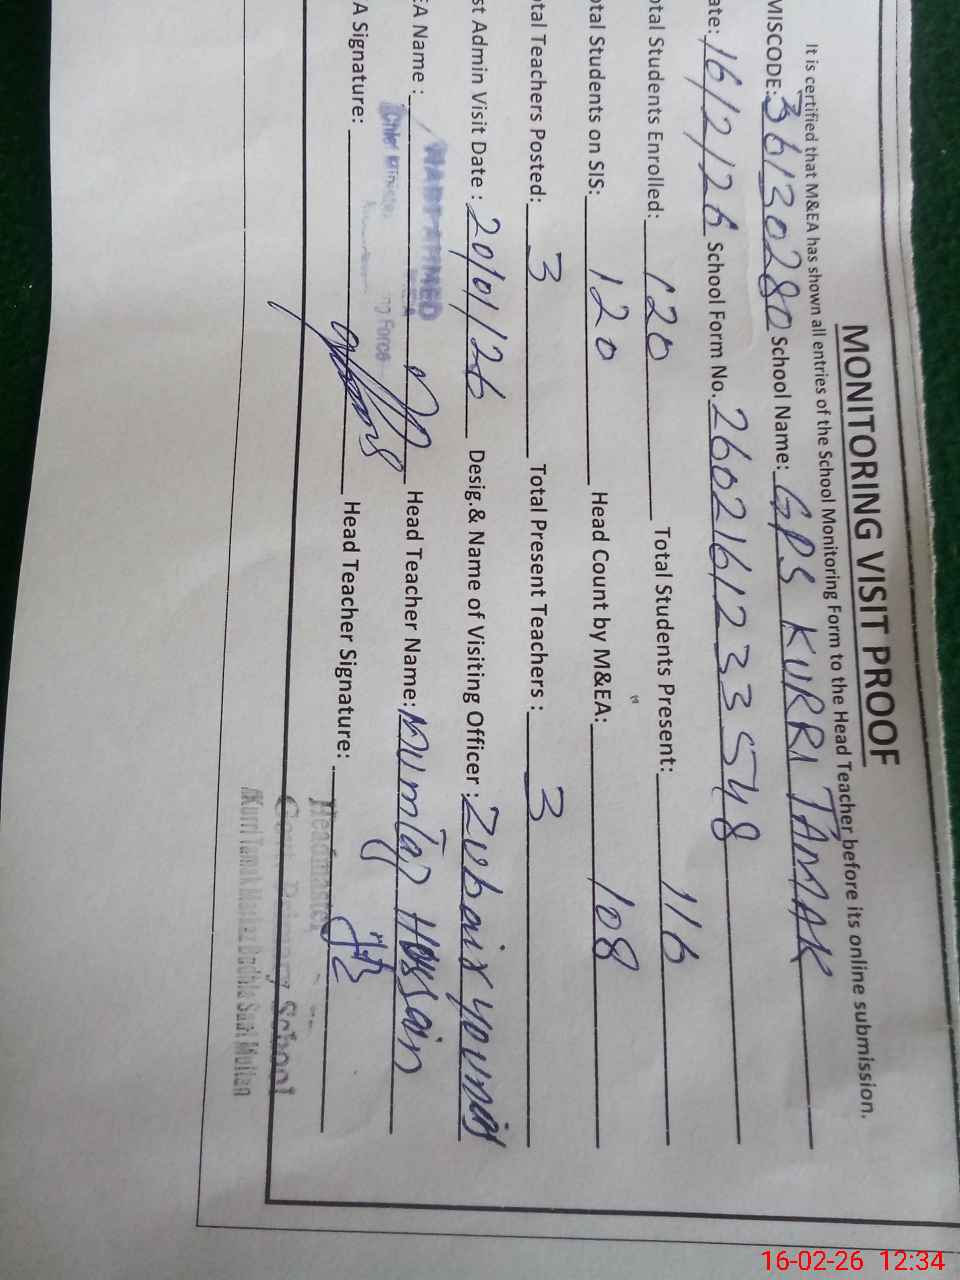 MONITORING VISIT PROOF
It is certified that M&EA has shown all entries of the School Monitoring Form to the Head Teacher before its online submission.
MISCODE: 36130280 School Name: GPS KURRI TAMAK
ate: 16/2/26 School Form No. 2602161233548
otal Students Enrolled: 120 Total Students Present: 116
otal Students on SIS: 120 Head Count by M&EA: 108
otal Teachers Posted: 3 Total Present Teachers : 3
st Admin Visit Date : 20/01/26 Desig.& Name of Visiting Officer : Zubair Younis
EA Name : AHMED Head Teacher Name: Mumtaz Hussain
Chief Minister Force
A Signature: Head Teacher Signature:
Headmaster
Govt. Primary School
Kurri Tamak Markaz Budhla Sant Multan
16-02-26 12:34